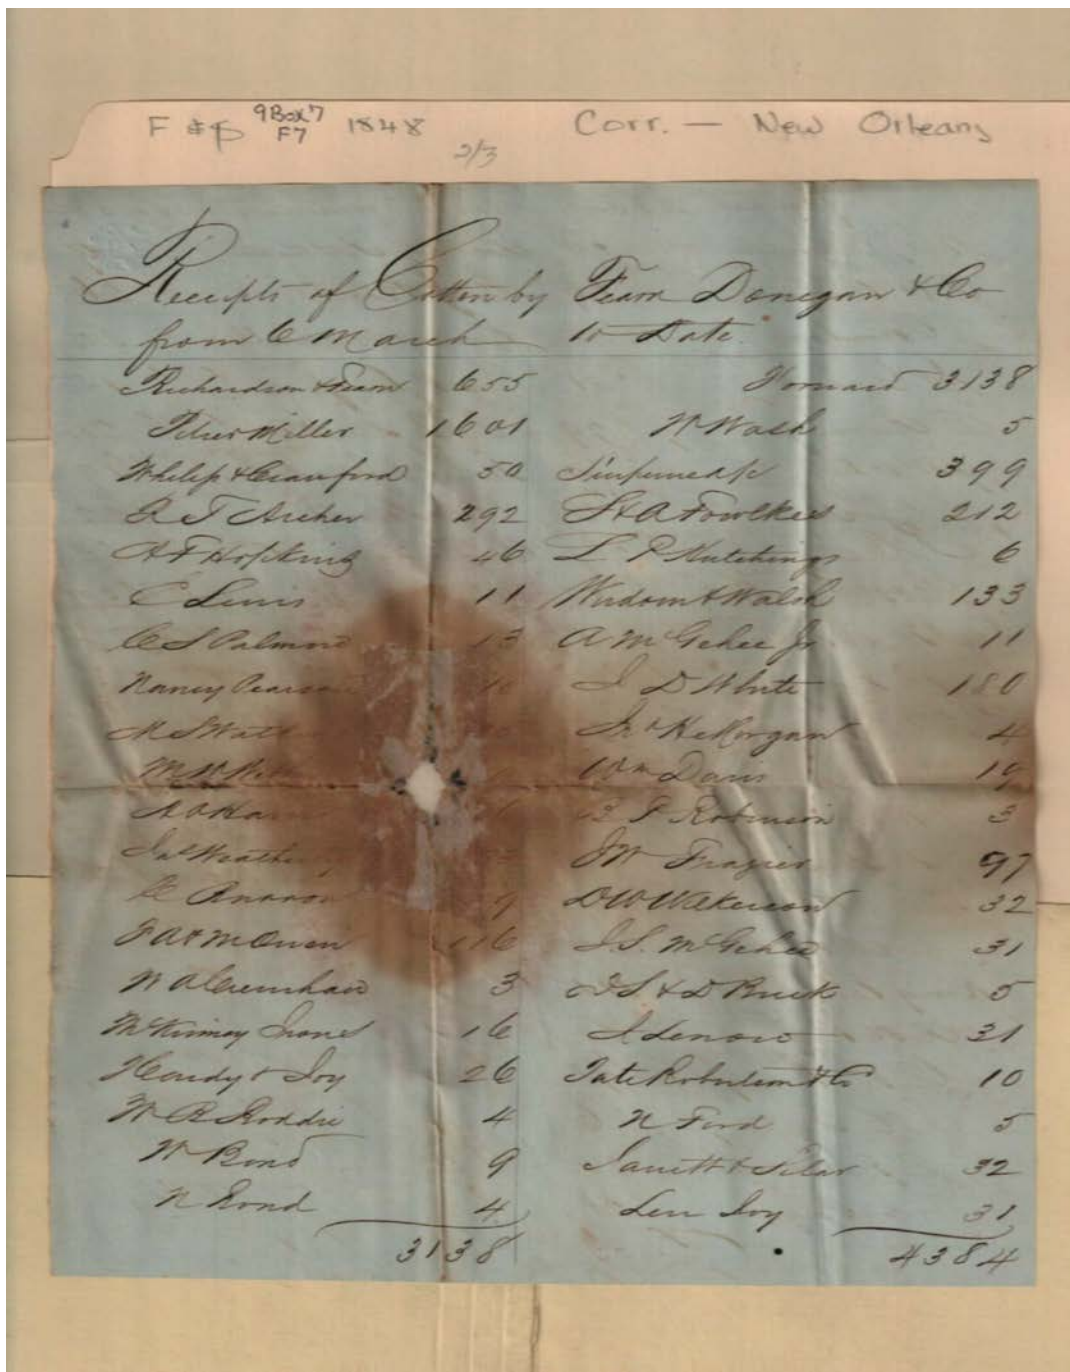 F & P 9Box7 F7 1848 Corr. — New Orleans
2/3
Receipts of Cotton by Fearn Donegan & Co
from 6 March to Date.
Richardson & Fearn 655
Peter Miller 1601
Philip & Crawford 50
A T Archer 292
H F Hopkins 46
C Lewis 11
C S Palmore 13
Nancy
M S
M W
A O
Jas
9
J A & M Owen 116
W A Crenshaw 3
McKinney Irons 16
Hardy & Ivy 26
W R Roddie 4
W Bond 9
N Bond 4
3138
Forward 3138
W Wash 5
399
H A Fowlkes 212
L P Hutchings 6
Wisdom & Walsh 133
A McGehee Jr 11
J D White 180
Morgan 4
Wm Davis 19
P Robinson 3
J W Frazier 97
D W Wilkerson 32
J S. McGehee 31
J S & D Buck 5
J Lenow 31
Tate Robertson & Co 10
N Ford 5
Jarrett & 32
Leu Ivy 31
4384